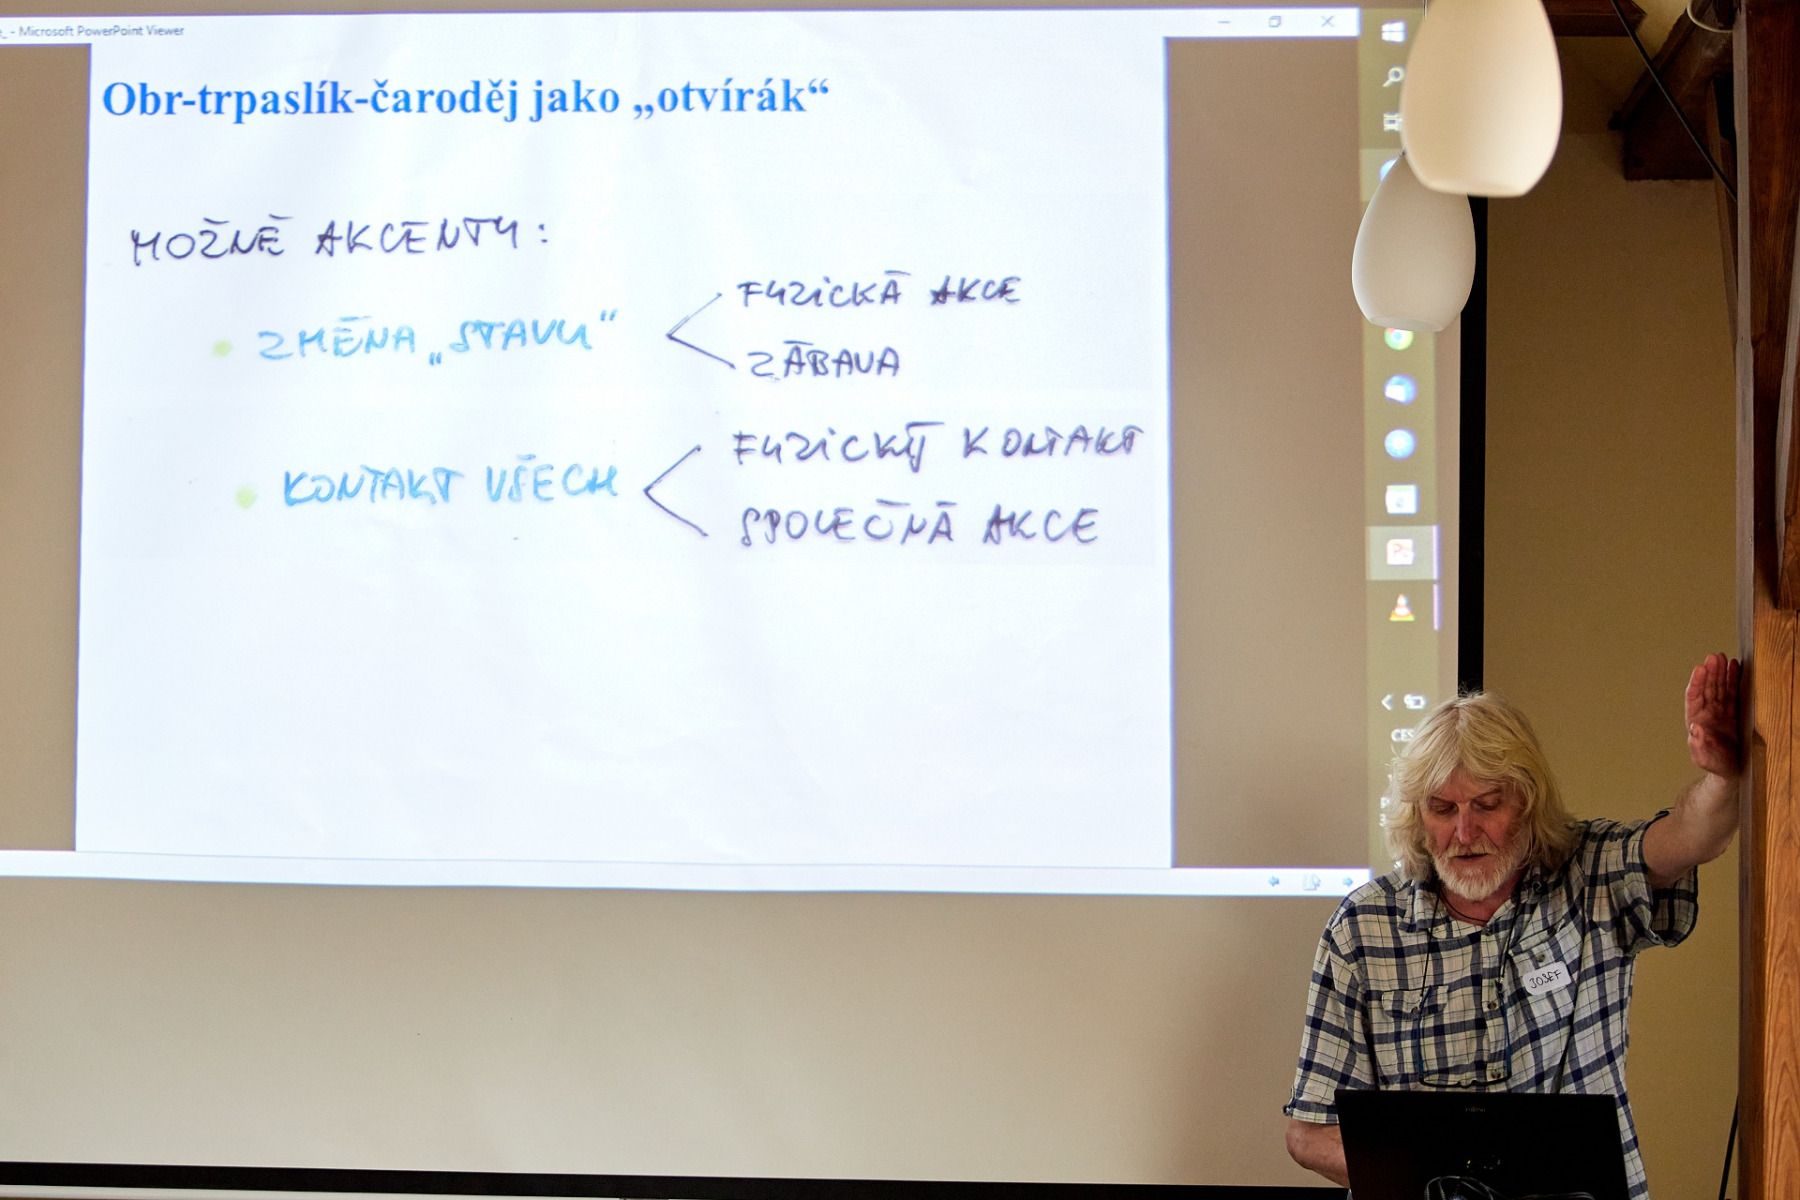 - Microsoft PowerPoint Viewer
Obr-trpaslík-čaroděj jako „otvírák“
MOŽNÉ AKCENTY:
ZMĚNA „STAVU“
FYZICKÁ AKCE
ZÁBAVA
KONTAKT VŠECH
FYZICKÝ KONTAKT
SPOLEČNÁ AKCE
CES
JOSEF
FUJITSU